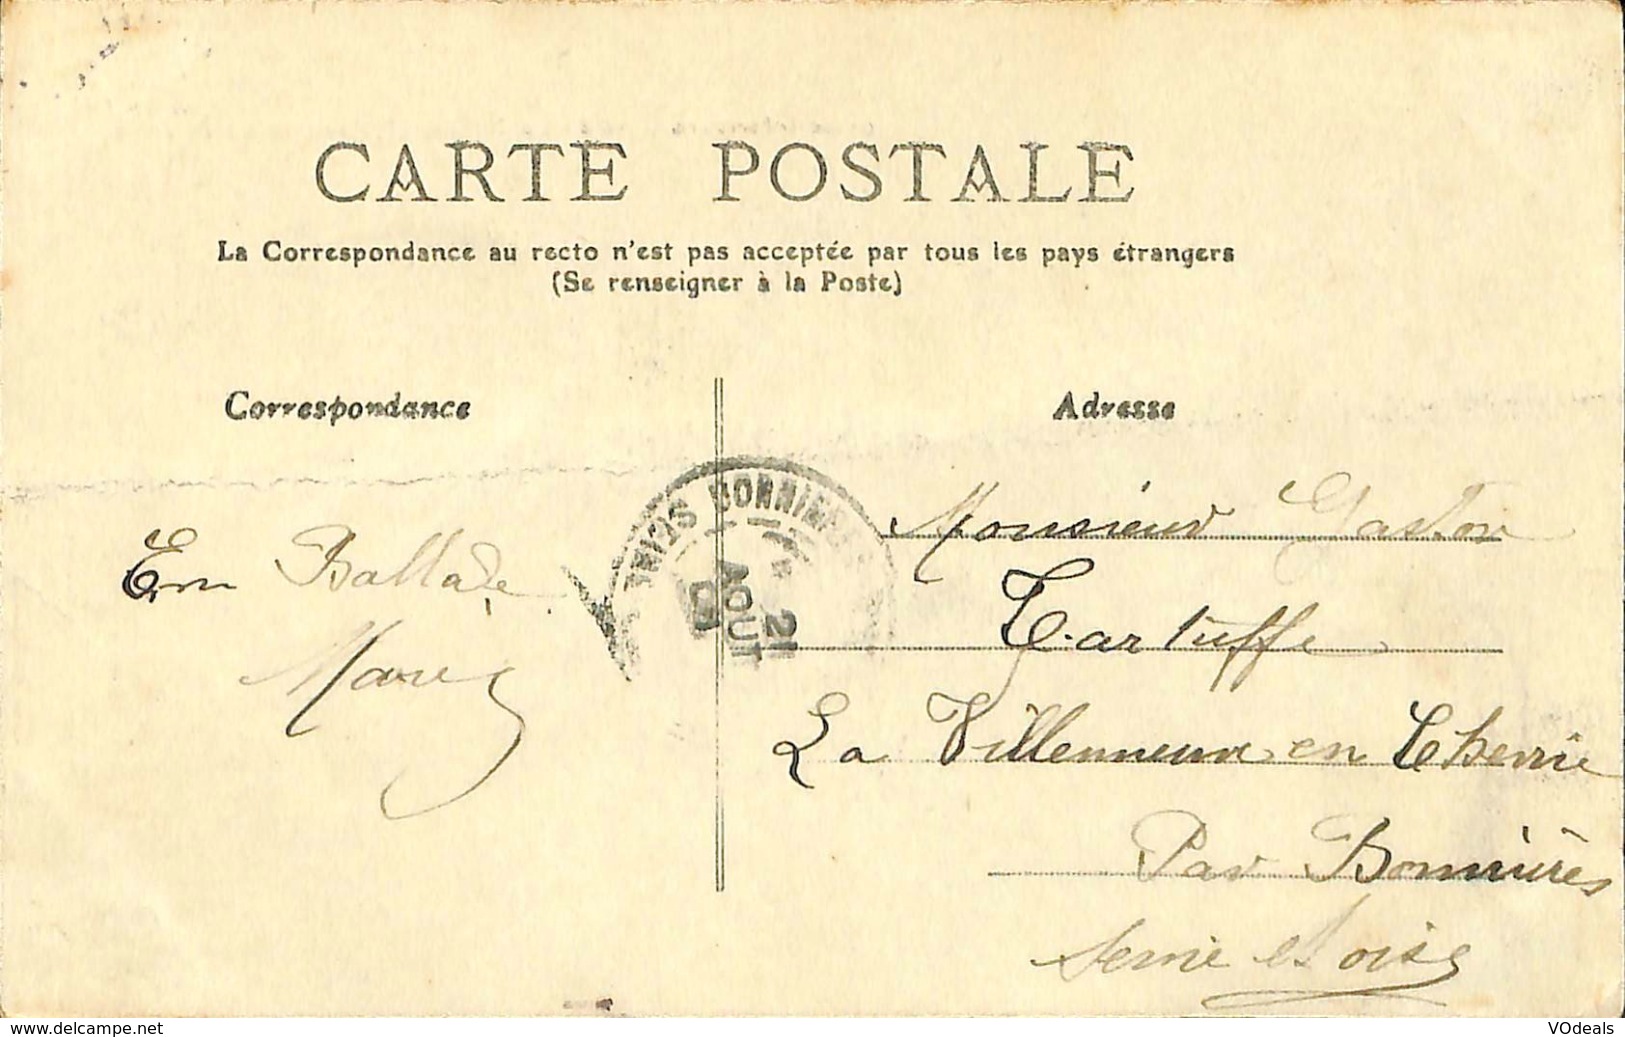 CARTE POSTALE
La Correspondance au recto n'est pas acceptée par tous les pays étrangers
(Se renseigner à la Poste)
Correspondance
Adresse
En Ballade
BONNIÈRES SEINE
21
AOUT
Monsieur Gaston
Tartuffe
La Villenneuve en Chevrie
Par Bonnières
Seine et Oise
www.delcampe.net
VOdeals